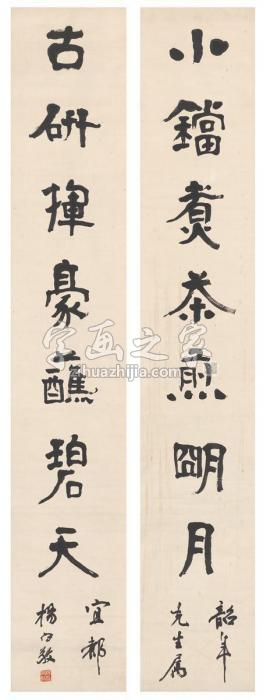 小鐺煑茶煎朙月
韶年
先生属
古研揮豪蘸碧天
宜都
楊守敬
字画之家
zhuazhijia.com